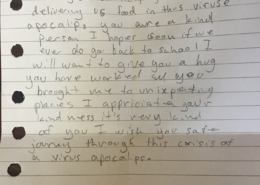 delivering us food in this viruse
apocalip. you are a kind
person I hoper soon if we
ever do go back to school I
will want to give you a hug
you have worked
brought me to unixpecting
places I appriciate your
kindness it's very kind
of you I wish you safe
journey through this crisis of
a virus apocalips.